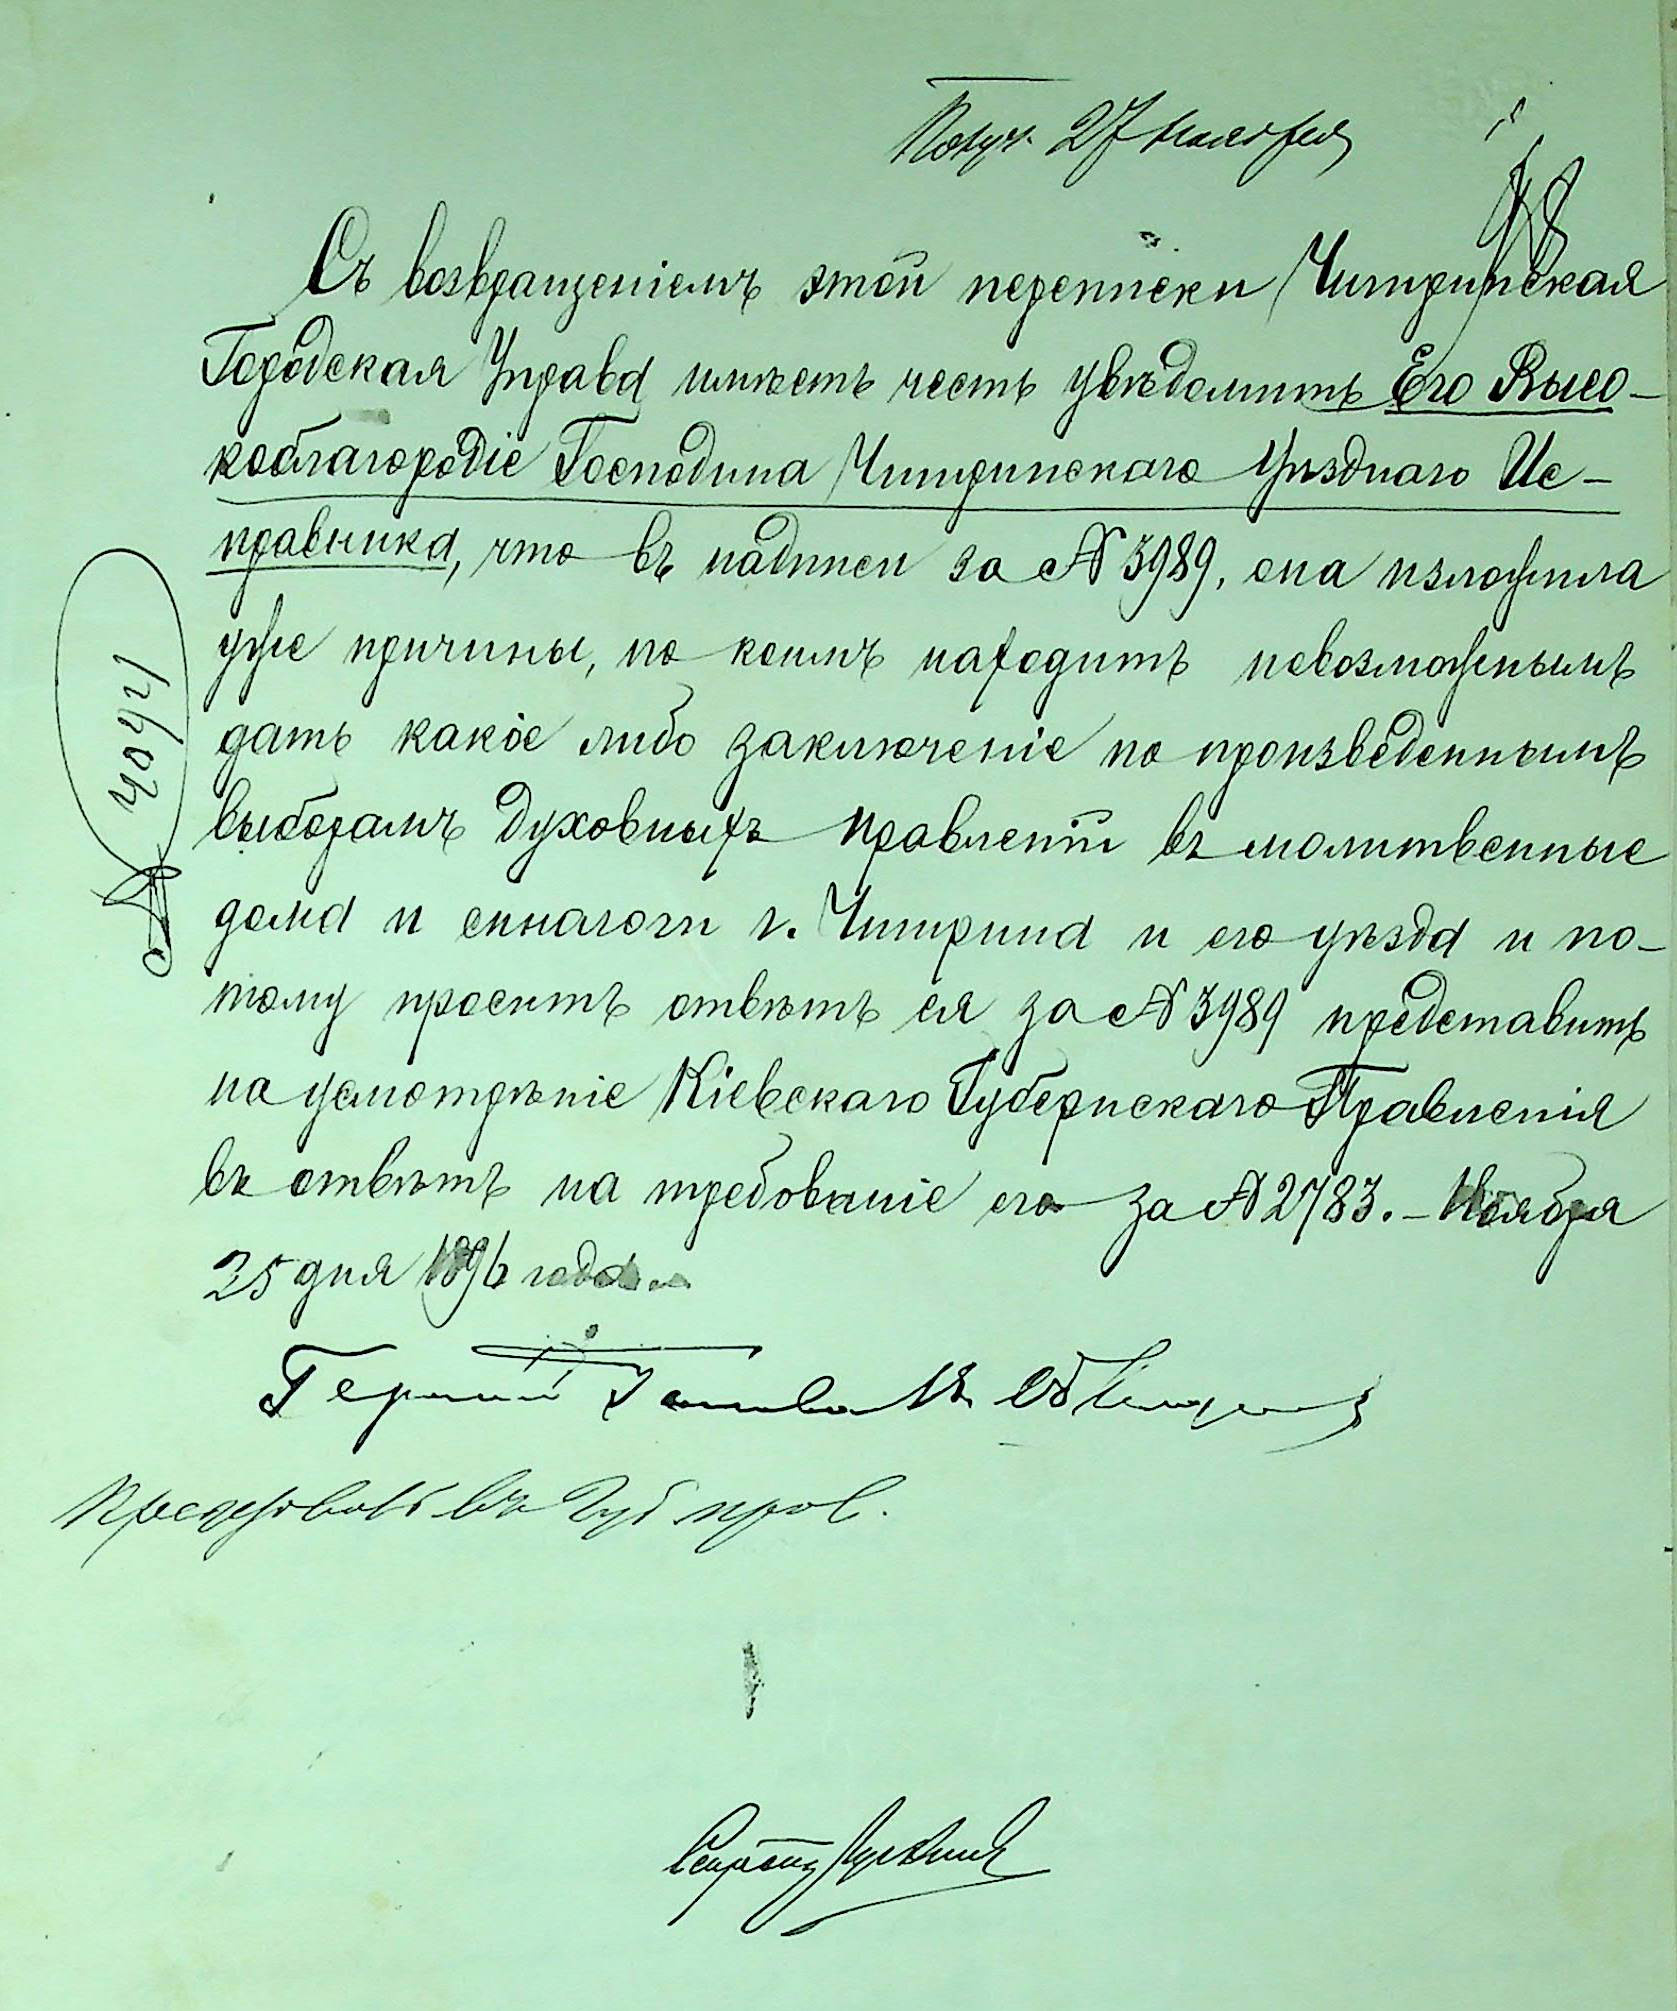 Получ. 27 ноября
Съ возвращеніемъ этой переписки Чигиринская
Городская Управа имѣетъ честь увѣдомить Его Высо-
коблагородіе Господина Чигиринскаго Уѣзднаго Ис-
правника, что въ надписи за № 3989, она изложила
уже причины, по коимъ находитъ невозможнымъ
дать какое либо заключеніе по произведеннымъ
выборамъ духовныхъ правленій въ молитвенные
дома и синагоги г. Чигирина и его уѣзда и по-
тому проситъ отвѣтъ ея за № 3989 представить
на усмотрѣніе Кіевскаго Губернскаго Правленія
въ отвѣтъ на требованіе его за № 2783. – Ноября
25 дня 1896 года
Городской Голова
въ Губ прав.